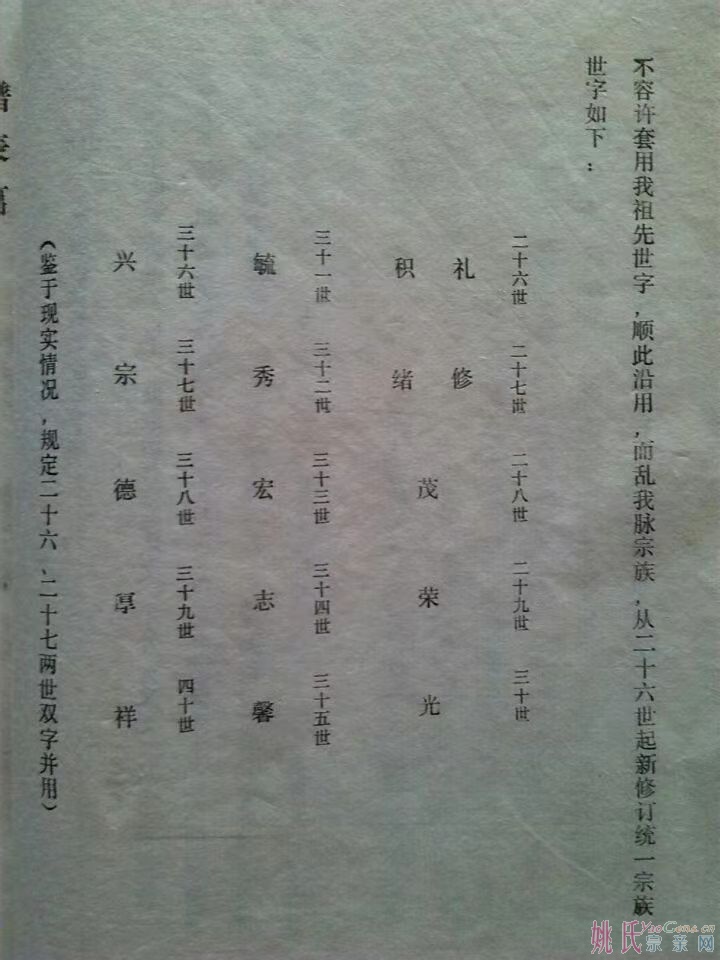 不容许套用我祖先世字,顺此沿用,而乱我脉宗族,从二十六世起新修订统一宗族
世字如下:
二十六世 二十七世 二十八世 二十九世 三十世
礼 修
积 绪 茂 荣 光
三十一世 三十二世 三十三世 三十四世 三十五世
毓 秀 宏 志 馨
三十六世 三十七世 三十八世 三十九世 四十世
兴 宗 德 厚 祥
(鉴于现实情况,规定二十六、二十七两世双字并用)
姚氏宗亲网
YaoGens.cn